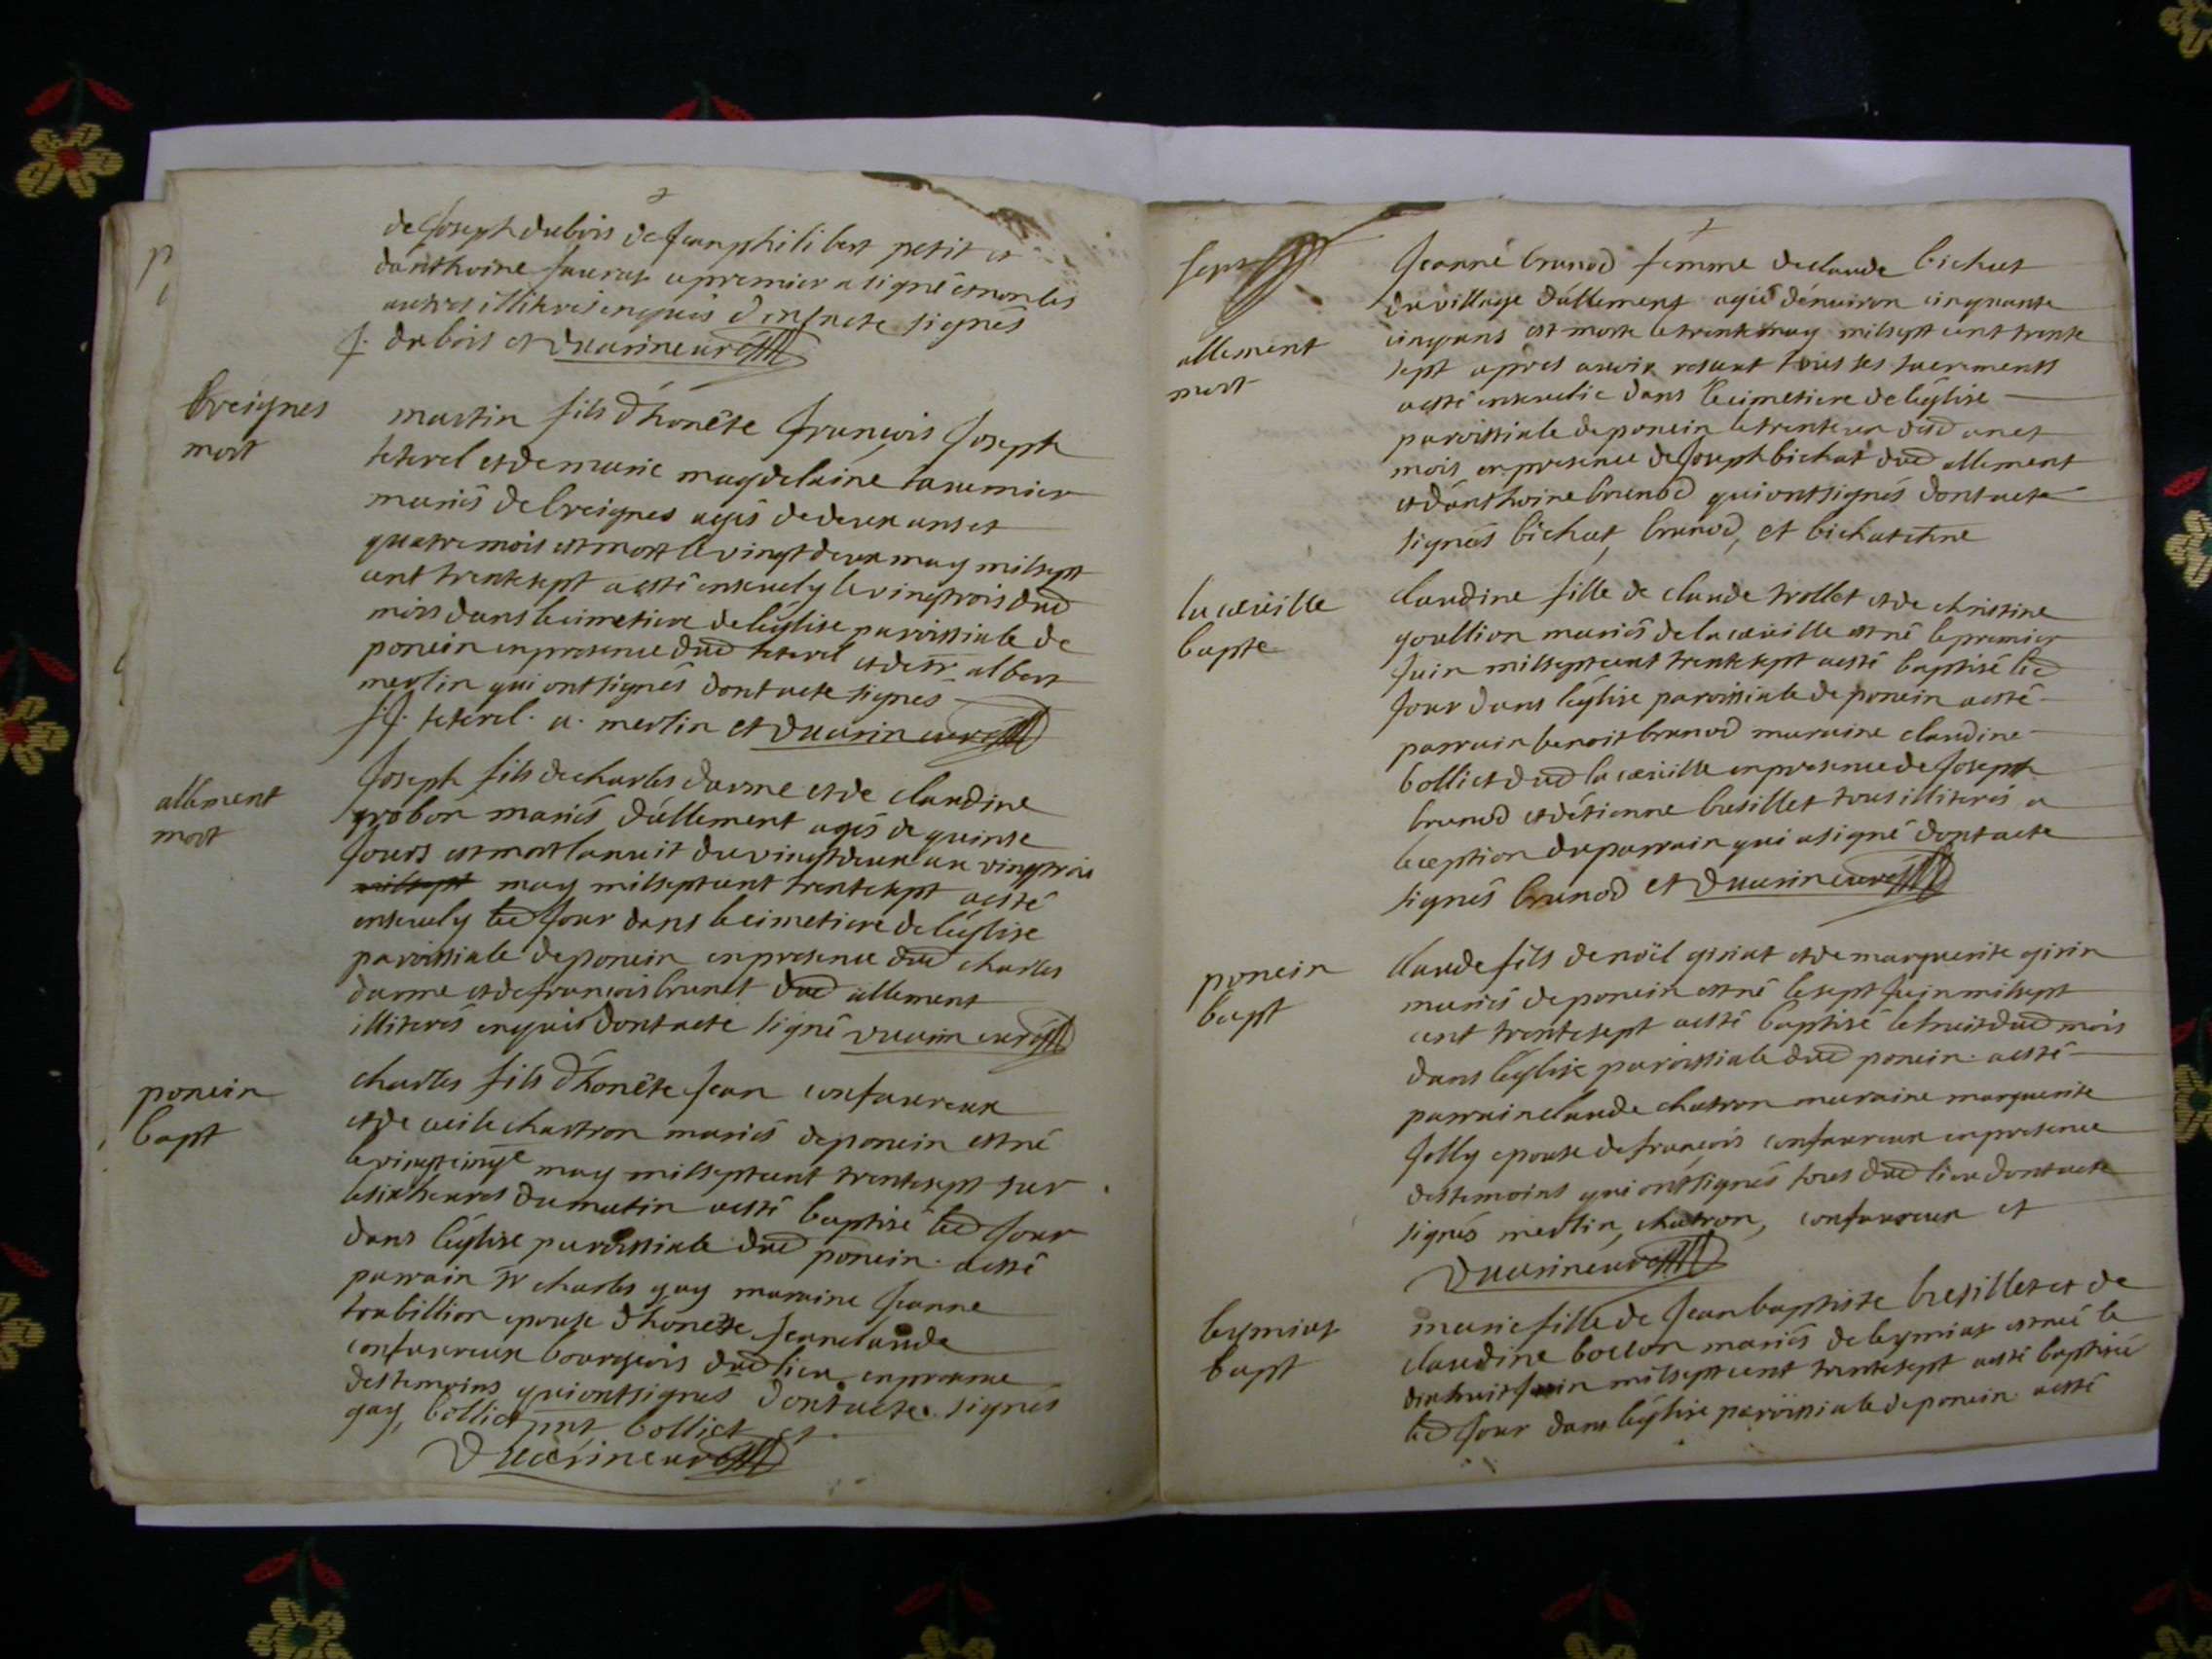 de Joseph dubois de Jean philibert petit et
danthoine le premier a signé et non les
autres illiterés enquis dont acte signés
J. dubois et
breignes
mort
martin fils d'honête françois Joseph
teterel et de marie magdelaine
mariés de breignes agés de deux ans et
quatre mois est mort le vingt deux may mil sept
cent trente sept a esté ensevely le vingtrois dud
mois dans le cimetiere de léglise paroissiale de
poncin en presence dud teterel et de sr albert
merlin qui ont signés dont acte signés
f. J. teterel. a. merlin et
allement
mort
Joseph fils de charles darme et de claudine
grobon mariés d'allement agés de quinse
Jours est mort la nuit du vingt deux au vingtrois
may mil sept cent trente sept a esté
ensevely led Jour dans le cimetiere de léglise
paroissiale de poncin en presence dud charles
darme et de françois brunet dud allement
illiterés enquis dont acte signé
poncin
bapt
charles fils d'honête Jean confavreux
et de cecile chastron mariés de poncin est né
le vingt cinqe may mil sept cent trente sept sur
les six heures du matin a esté baptisé led Jour
dans léglise paroissiale dud poncin. a esté
parrain sr charles guy maraine Jeanne
epouse d'honeste Jean claude
confavreux bourgeois dud lieu en presence
des temoins qui ont signés dont acte signés
guy, bolliet, bolliet et
sept
allement
mort
Jeanne brunod femme de claude bichat
du village d'allement agée d'environ cinquante
cinq ans est morte le trente may mil sept cent trente
sept apres avoir receut tous ses sacrements
a esté ensevelie dans le cimetiere de léglise
paroissiale de poncin le trente un desd an et
mois en presence de Joseph bichat dud allement
et d'anthoine brunod qui ont signés dont acte
signés bichat, brunod, et bichat
la cueille
bapte
claudine fille de claude trollet et de christine
goullion mariés de la cueille est né le premier
Juin mil sept cent trente sept a esté baptisé led
Jour dans léglise paroissiale de poncin a esté
parrain benoit brunod maraine claudine
bolliet dud la cueille en presence de Joseph
brunod et d'étienne basillet tous illiterés a
leception du parrain qui a signé dont acte
signés brunod et
poncin
bapt
claude fils de noël giriat et de marguerite girin
mariés de poncin est né le sept Juin mil sept
cent trente sept a esté baptisé le huit dud mois
dans léglise paroissiale dud poncin. a esté
parrain claude chatron maraine marguerite
Jolly epouse de françois confavreux en presence
des temoins qui ont signés tous dud lieu dont acte
signés merlin, chatron, confavreux et
leymiat
bapt
marie fille de Jean baptiste bresillet et de
claudine bollon mariés de leymiat est né le
dix huit Juin mil sept cent trente sept a esté baptisée
led Jour dans léglise paroissiale de poncin a esté